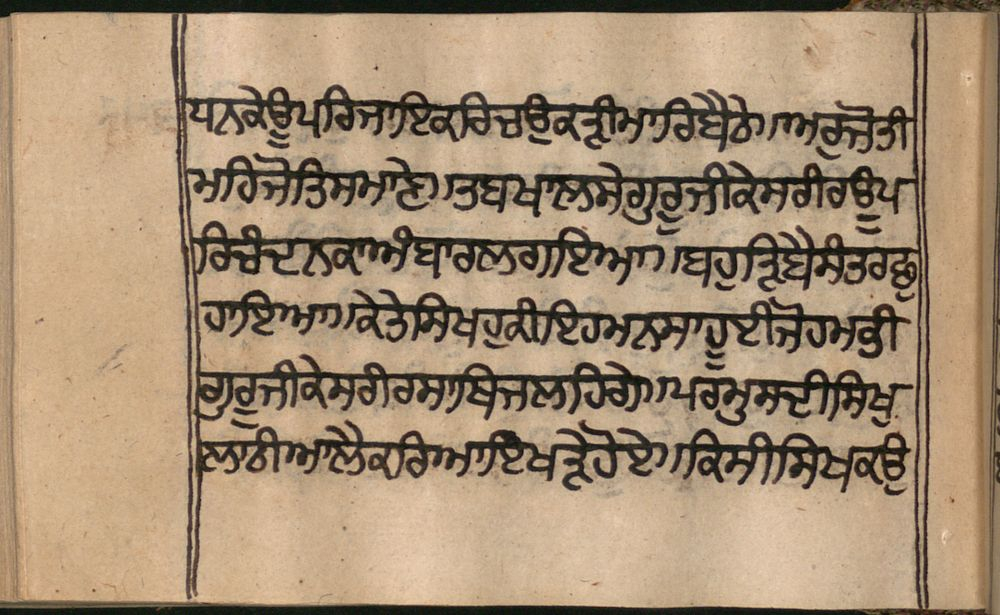 ਧਨਕੇਊਪਰਿਜਾਇਕਰਿਚਉਕੜੀਮਾਰਿਬੈਠੇ॥ਅਰੁਜੋਤੀ
ਮਹਿਜੋਤਿਸਮਾਣੇ॥ਤਬਖਾਲਸੇਗੁਰੂਜੀਕੇਸਰੀਰਊਪ
ਰਿਚੰਦਨਕਾਅੰਬਾਰਲਗਾਇਆ॥ਬਹੁੜਿਬੈਸੰਤਰਛੁ
ਹਾਇਆ॥ਕੇਤੇਸਿਖਹੁਕੀਇਹਮਨਸਾਹੂਈਜੋਹਮਭੀ
ਗੁਰੂਜੀਕੇਸਰੀਰਸਾਥਿਜਲਹਿਗੇ॥ਪਰਮੁਸਦੀਸਿਖੁ
ਲਾਠੀਆਲੈਕਰਿਆਇਖੜੇਹੋਏ॥ਕਿਸੀਸਿਖਕਉ